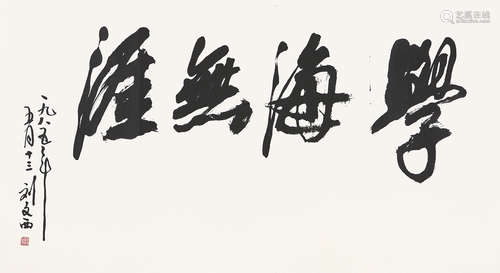 學海無涯
一九八五年
五月十三 刘文西
艺狐在线